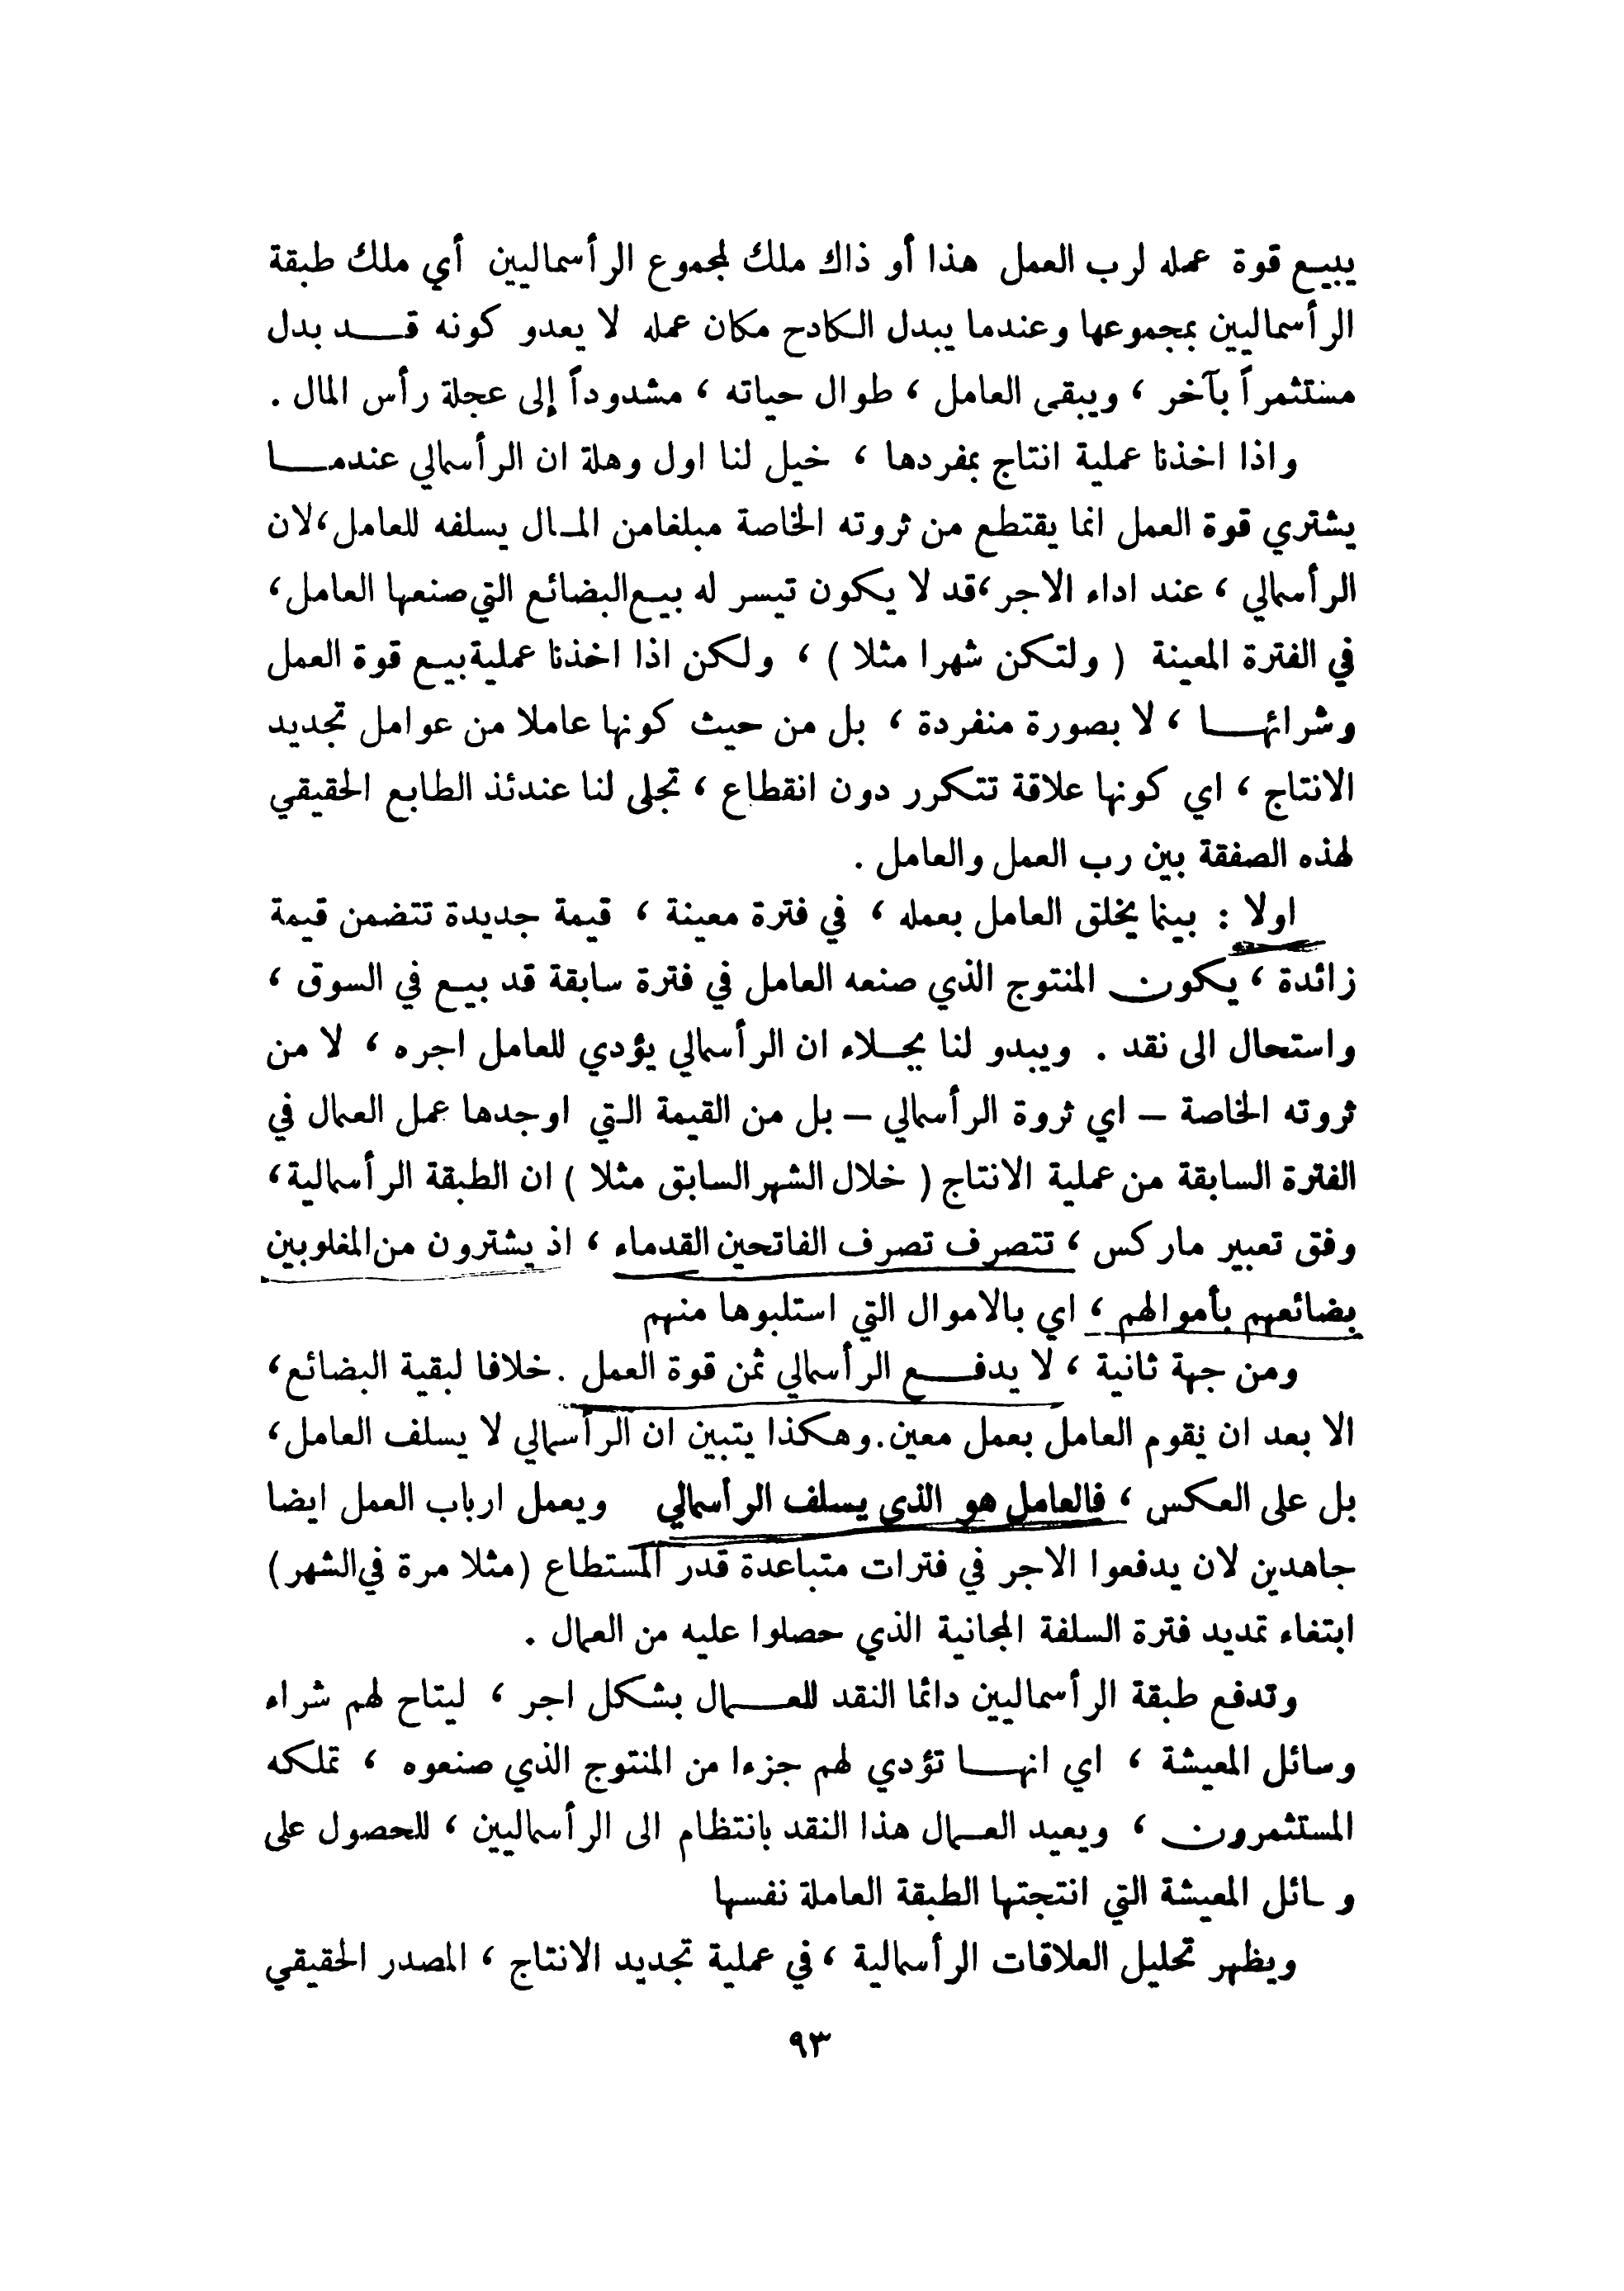 يبيع قوة عمله لرب العمل هذا أو ذاك ملك لمجموع الرأسماليين أي ملك طبقة
الرأسماليين بمجموعها وعندما يبدل الكادح مكان عمله لا يعدو كونه قد بدل
مستثمراً بآخر ، ويبقى العامل ، طوال حياته ، مشدوداً إلى عجلة رأس المال .
واذا اخذنا عملية انتاج بمفردها ، خيل لنا اول وهلة ان الرأسمالي عندما
يشتري قوة العمل انما يقتطع من ثروته الخاصة مبلغامن المال يسلفه للعامل،لان
الرأسمالي ، عند اداء الاجر،قد لا يكون تيسر له بيع البضائع التي صنعها العامل،
في الفترة المعينة ( ولتكن شهرا مثلا ) ، ولكن اذا اخذنا عملية بيع قوة العمل
وشرائها ، لا بصورة منفردة ، بل من حيث كونها عاملا من عوامل تجديد
الانتاج ، اي كونها علاقة تتكرر دون انقطاع ، تجلى لنا عندئذ الطابع الحقيقي
لهذه الصفقة بين رب العمل والعامل .
اولا : بينما يخلق العامل بعمله ، في فترة معينة ، قيمة جديدة تتضمن قيمة
زائدة ، يكون المنتوج الذي صنعه العامل في فترة سابقة قد بيع في السوق ،
واستحال الى نقد . ويبدو لنا بجلاء ان الرأسمالي يؤدي للعامل اجره ، لا من
ثروته الخاصة – اي ثروة الرأسمالي – بل من القيمة التي اوجدها عمل العمال في
الفترة السابقة من عملية الانتاج ( خلال الشهر السابق مثلا ) ان الطبقة الرأسمالية،
وفق تعبير ماركس ، تتصرف تصرف الفاتحين القدماء ، اذ يشترون من المغلوبين
بضائعهم بأموالهم ، اي بالاموال التي استلبوها منهم
ومن جهة ثانية ، لا يدفع الرأسمالي ثمن قوة العمل . خلافا لبقية البضائع،
الا بعد ان يقوم العامل بعمل معين.وهكذا يتبين ان الرأسمالي لا يسلف العامل،
بل على العكس ، فالعامل هو الذي يسلف الرأسمالي ويعمل ارباب العمل ايضا
جاهدين لان يدفعوا الاجر في فترات متباعدة قدر المستطاع (مثلا مرة في الشهر)
ابتغاء تمديد فترة السلفة المجانية الذي حصلوا عليه من العمال .
وتدفع طبقة الرأسماليين دائما النقد للعمال بشكل اجر ، ليتاح لهم شراء
وسائل المعيشة ، اي انها تؤدي لهم جزءا من المنتوج الذي صنعوه ، تملكه
المستثمرون ، ويعيد العمال هذا النقد بانتظام الى الرأسماليين ، للحصول على
وسائل المعيشة التي انتجتها الطبقة العاملة نفسها
ويظهر تحليل العلاقات الرأسمالية ، في عملية تجديد الانتاج ، المصدر الحقيقي
٩٣